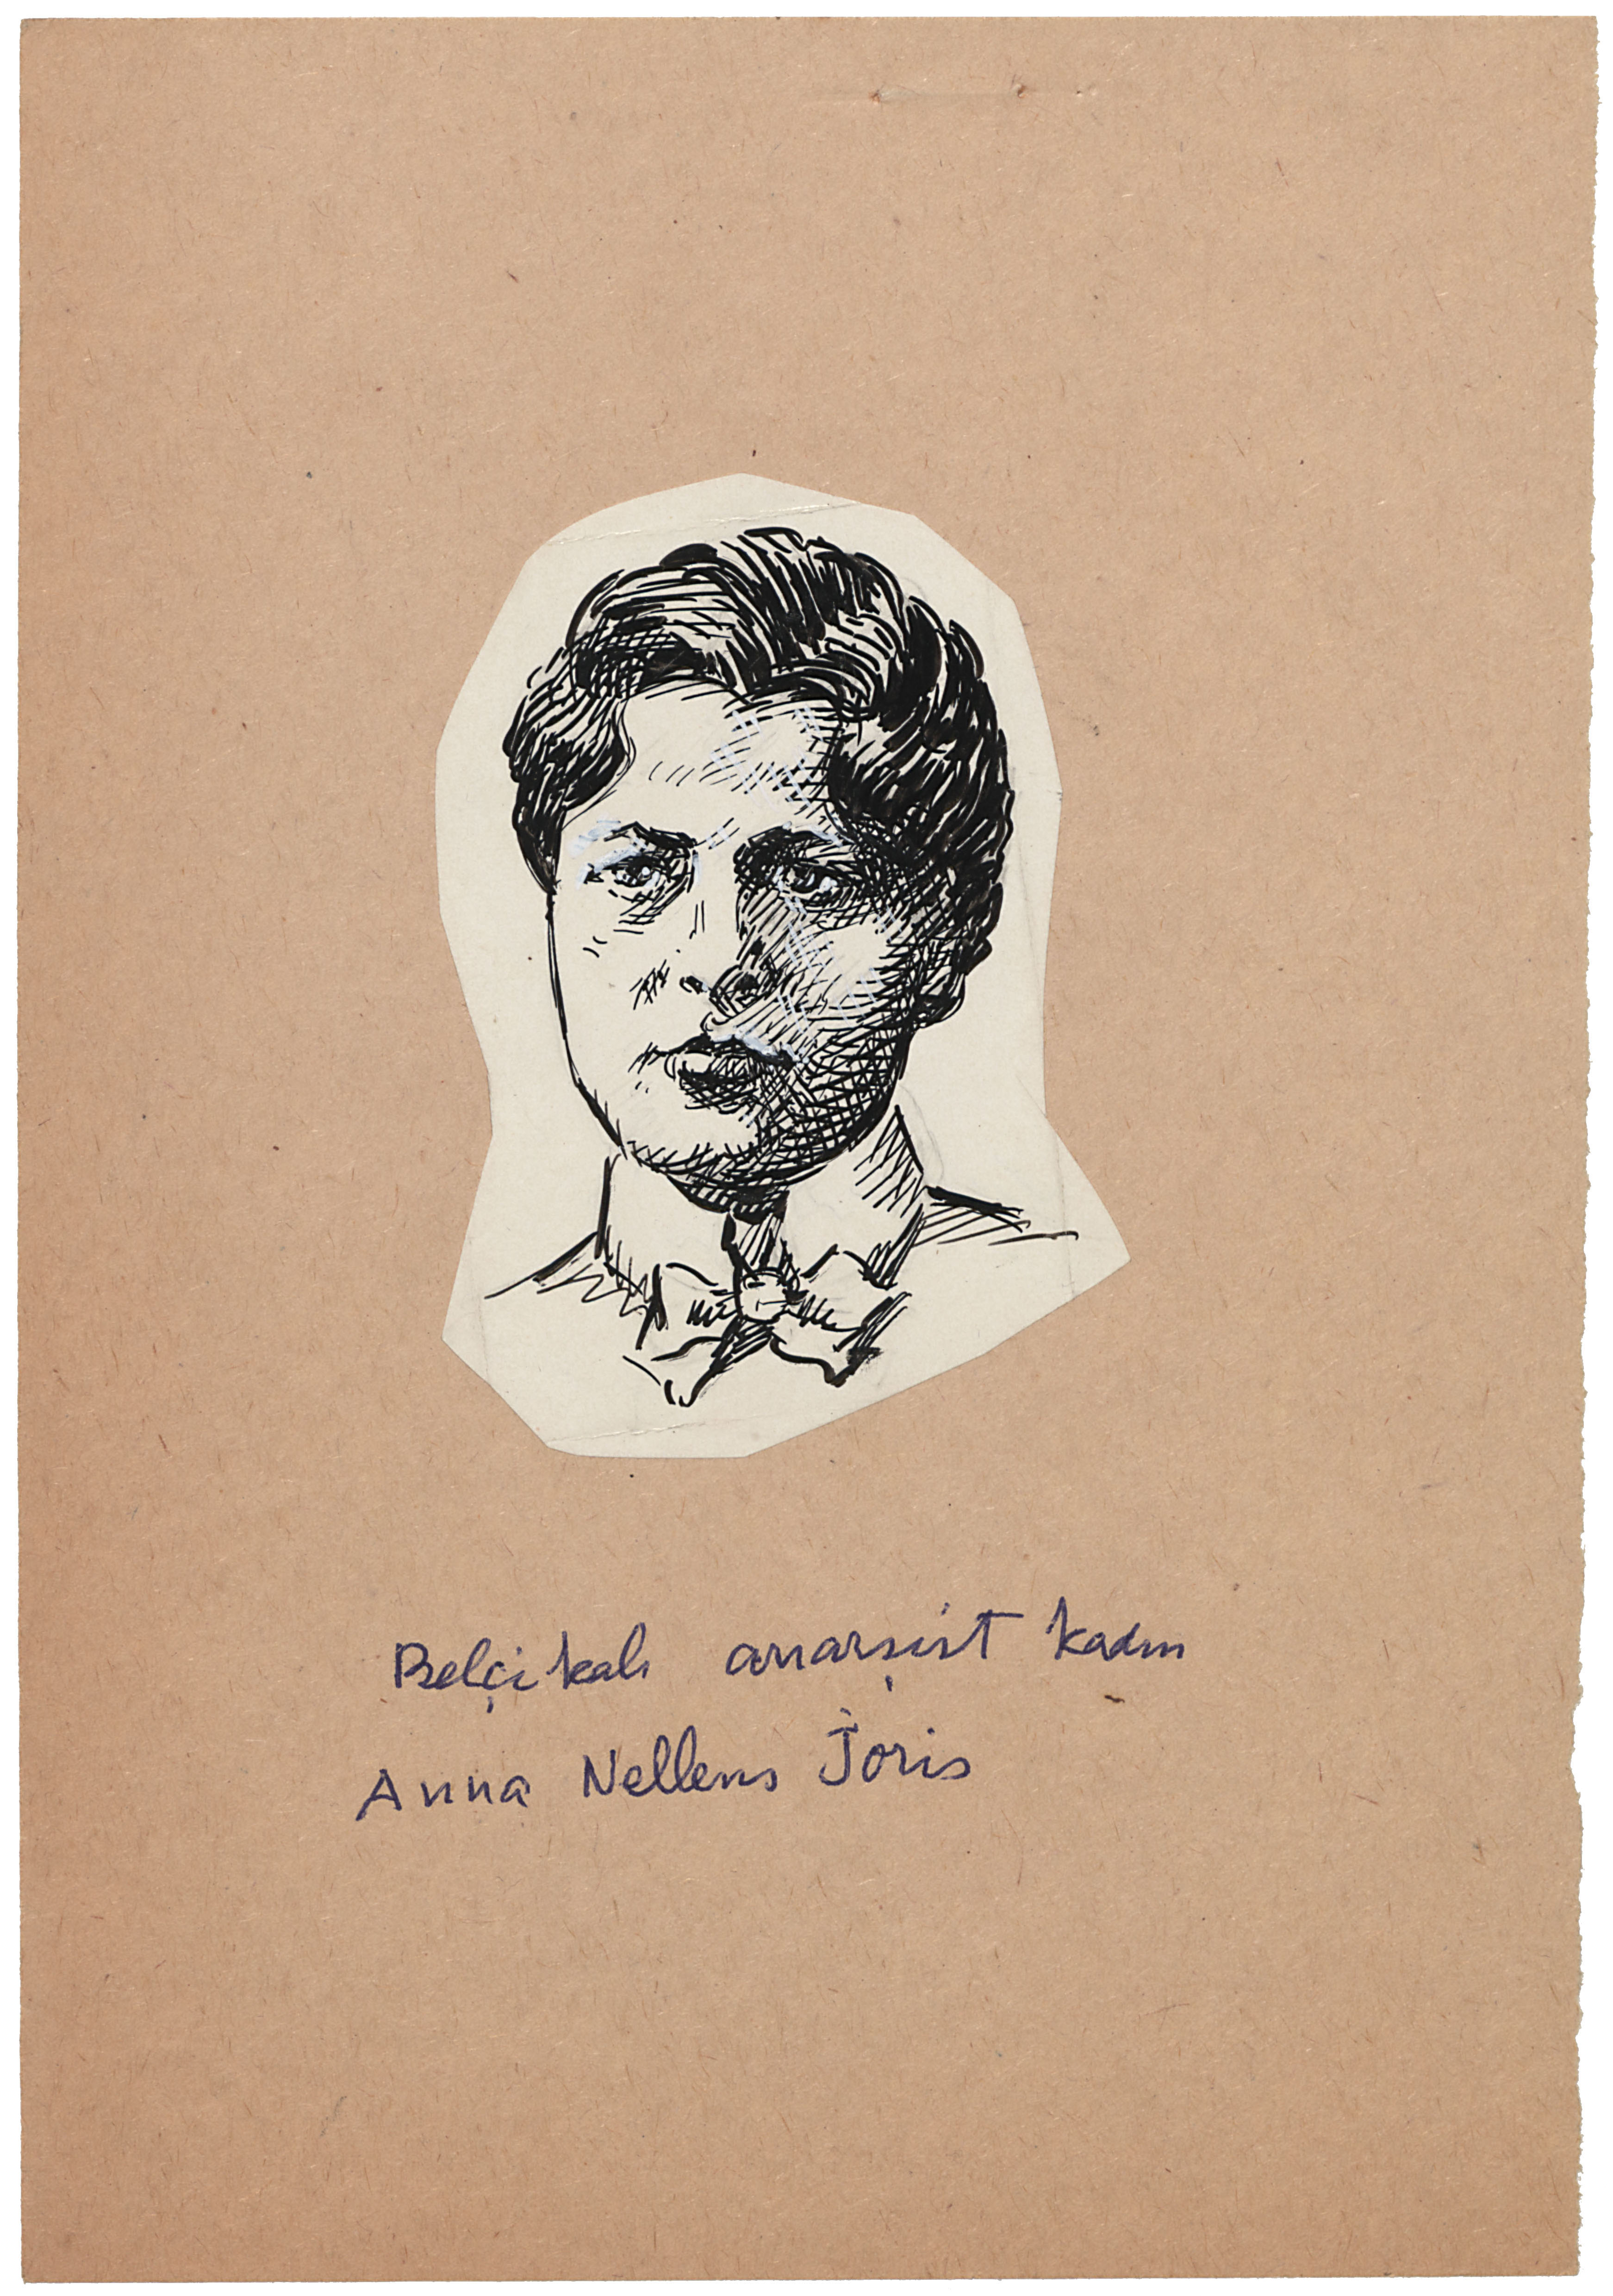 Belçikalı anarşist kadın
Anna Nellens Joris